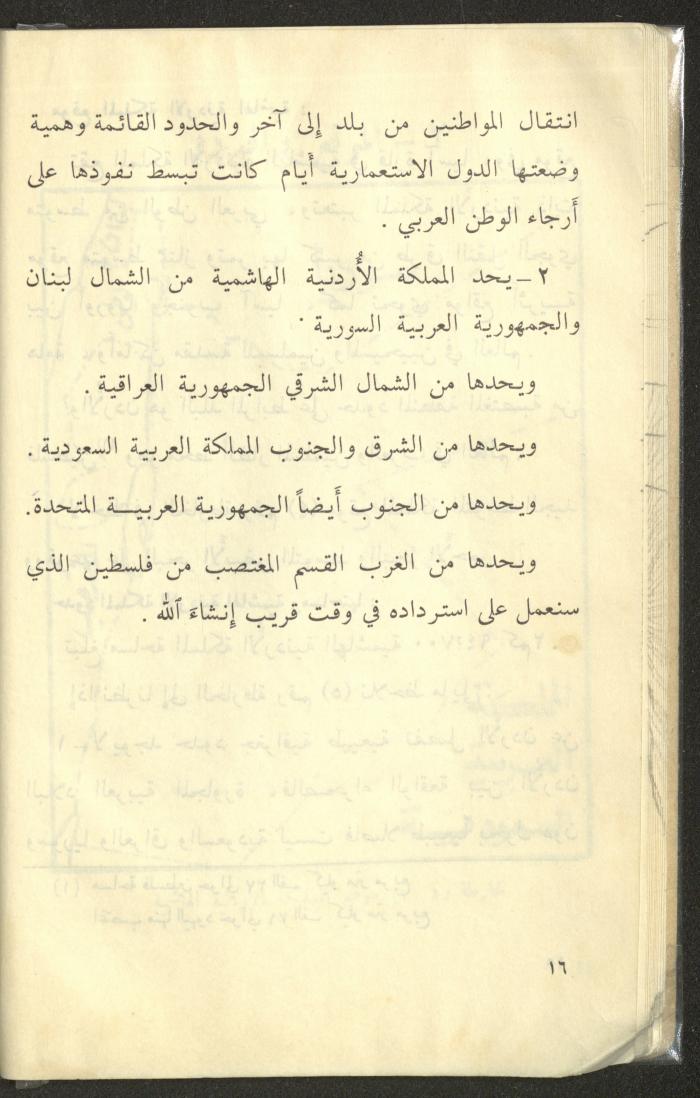 انتقال المواطنين من بلد إلى آخر والحدود القائمة وهمية
وضعتها الدول الاستعمارية أيام كانت تبسط نفوذها على
أرجاء الوطن العربي .
٢ – يحد المملكة الأُردنية الهاشمية من الشمال لبنان
والجمهورية العربية السورية .
ويحدها من الشمال الشرقي الجمهورية العراقية .
ويحدها من الشرق والجنوب المملكة العربية السعودية .
ويحدها من الجنوب أيضاً الجمهورية العربيـــة المتحدة.
ويحدها من الغرب القسم المغتصب من فلسطين الذي
سنعمل على استرداده في وقت قريب إنشاءَ الله .
١٦